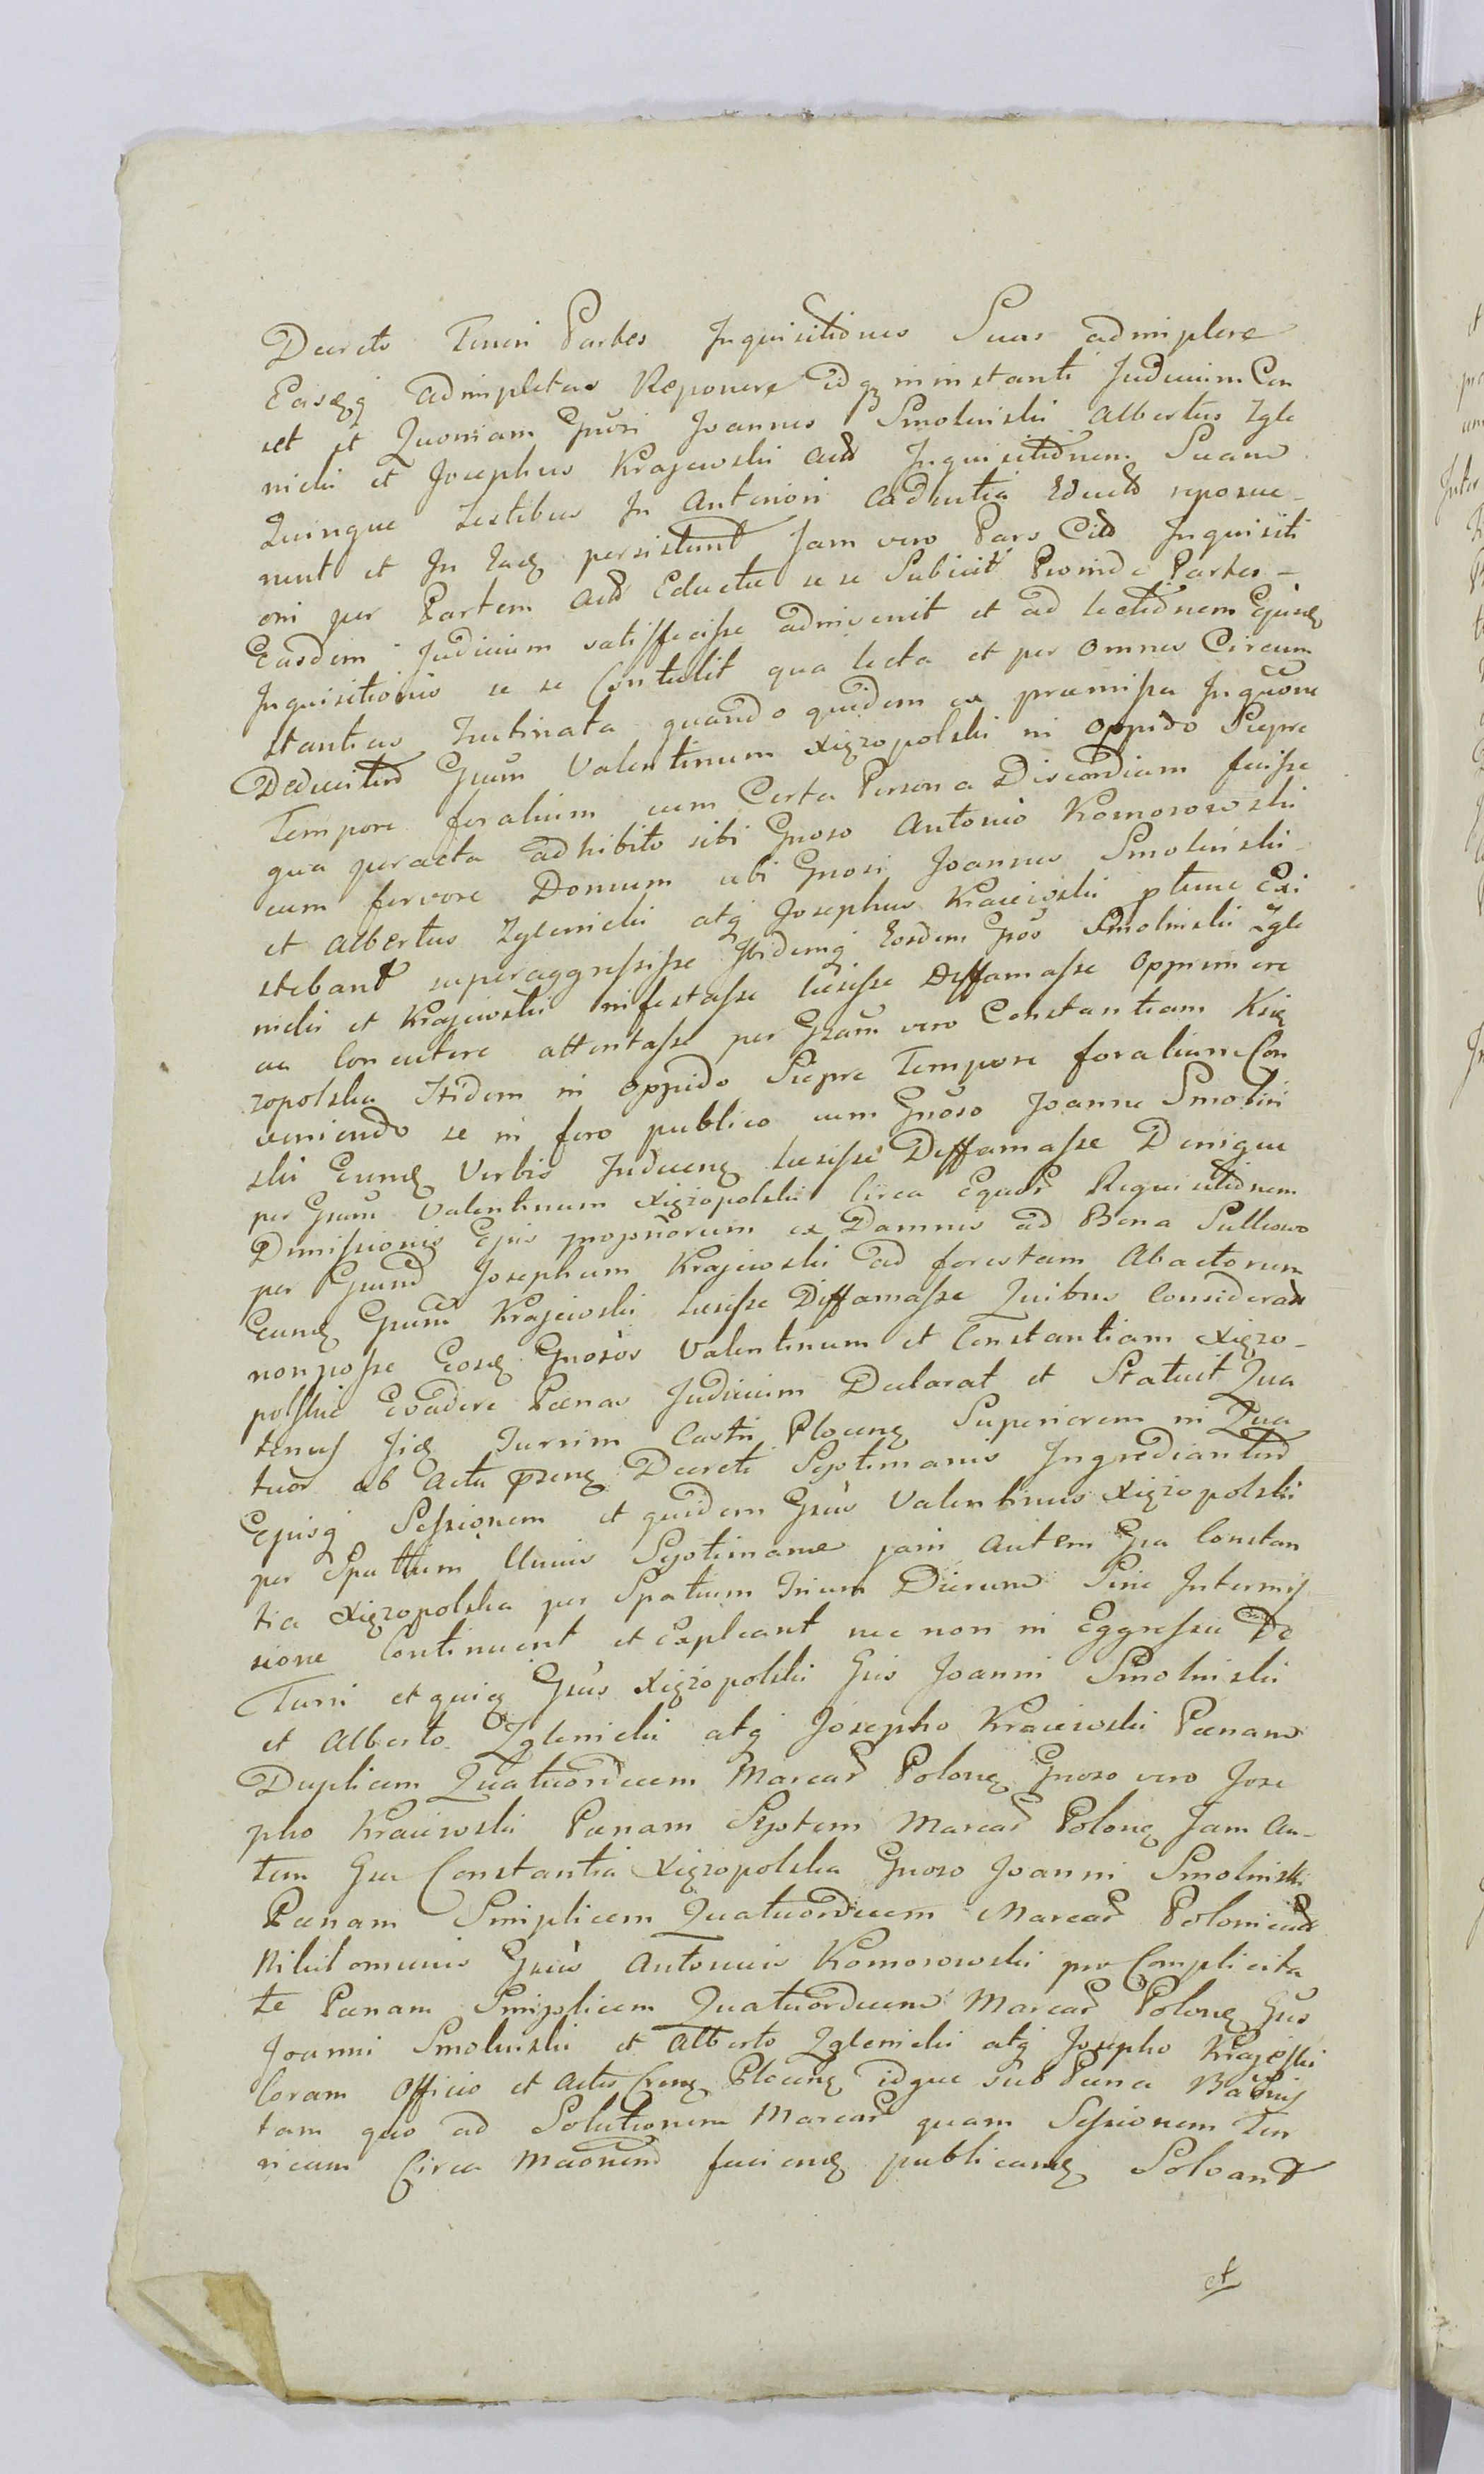 Decreto Teneri Partes Inquisitiones Suas adimplere
Easqq adimpletas Reponere idqz in instanti Judicium Cen
set et Quoniam Gnosi Joannes Smolinski Albertus Zgle
nicki et Josephus Krajewski Actd Inquisitionem Suam
Quinque Testibus In Anteriori Cadentia Educto reposue-
runt et In Eadq persistunt Jam vero Pars Citd Inquisiti
oni per Partem Actd Eductae se se Subiicit Proinde Partes -
Easdem Judicium satisffecisse adinvenit et ad lectionem Ejusdq
Inquisitionis se se Contulit qua lecta et per Omnes Circum
stantias Trutinata quando quidem ex praemissa Inquone
Deducitur Gsum Valentinum Xięzopolski in Oppido Sierpc
Tempore foralium cum Certa Persona Discordiam fecisse
qua peracta adhibito sibi Gnoso Antonio Komorowski
cum fervore Domum ubi Gnosi Joannes Smolinski
et Albertus Zglenicki atq Josephus Kraiewski ptunc Exi
stebant superaggressisse Ibidemq Eosdem Gsos Smolinski Zgle
nicki et Krajewski infestasse laesisse Deffamasse Opprimere
ac Concutere attentasse per Gsam vero Constantiam Xię
zopolska Itidem in Oppido Sierpc Tempore foralium Con
veniendo se in foro publico cum Gnoso Joanne Smolin
ski Eundq Verbis Indecenq laesisse Deffamasse Denique
per Gsum Valentinum Xięzopolski Circa Equor Requisitionem
Dimissionis Ejus propriorum ex Damnis ad Bona Sulkowo
per Gsum Josephum Krajewski ad forestam Abactorum
Eundq Gsum Krajewski laesisse Diffamasse Quibus Considerats
non posse Eosdq Gnosos Valentinum et Constantiam Xięzo-
polskie Evadere Paenas Judicium Declarat et Statuit Qua
tenus Jidq Turrim Castri Plocenq Superiorem in Qua
tuor ab Actu psenq Decreti Septimanis Ingrediantur
Ejusq Sessionem et quidem Gsus Valentinus Xięzopolski
per Spatium Unius Septimanae jam autem Gsa Constan
tia Xięzopolska per Spatium Trium Dierum Sine Intermis
sione Continuent et Expleant nec non in Eggressu De
Turri et quidq Gsus Xięzopolski Gsis Joanni Smolinski
et Alberto Zglenicki atq Josepho Kraiewski Paenam
Duplicem Quatuordecem Marcar Polonq Gnoso vero Jose
pho Kraiewski Paenam Septem Marcar Polonq Jam Au-
tem Gsa Constantia Xięzopolska Gnoso Joanni Smolinski
Paenam Simplicem Quatuordecem Marcar Polonicar
Nihilominus Gsus Antonius Komorowski pro Complicita
te Paenam Simplicem Quatuordecem Marcar Polonq Gsis
Joanni Smolinski et Alberto Zglenicki atq Josepho Krajewski
Coram Officio et Actis Crenq Plocenq idque sub Paena Bannis
tam quo ad Solutionem Marcar quam Sessionem Tur
ricam Circa faciendq publicandq Solvant
et